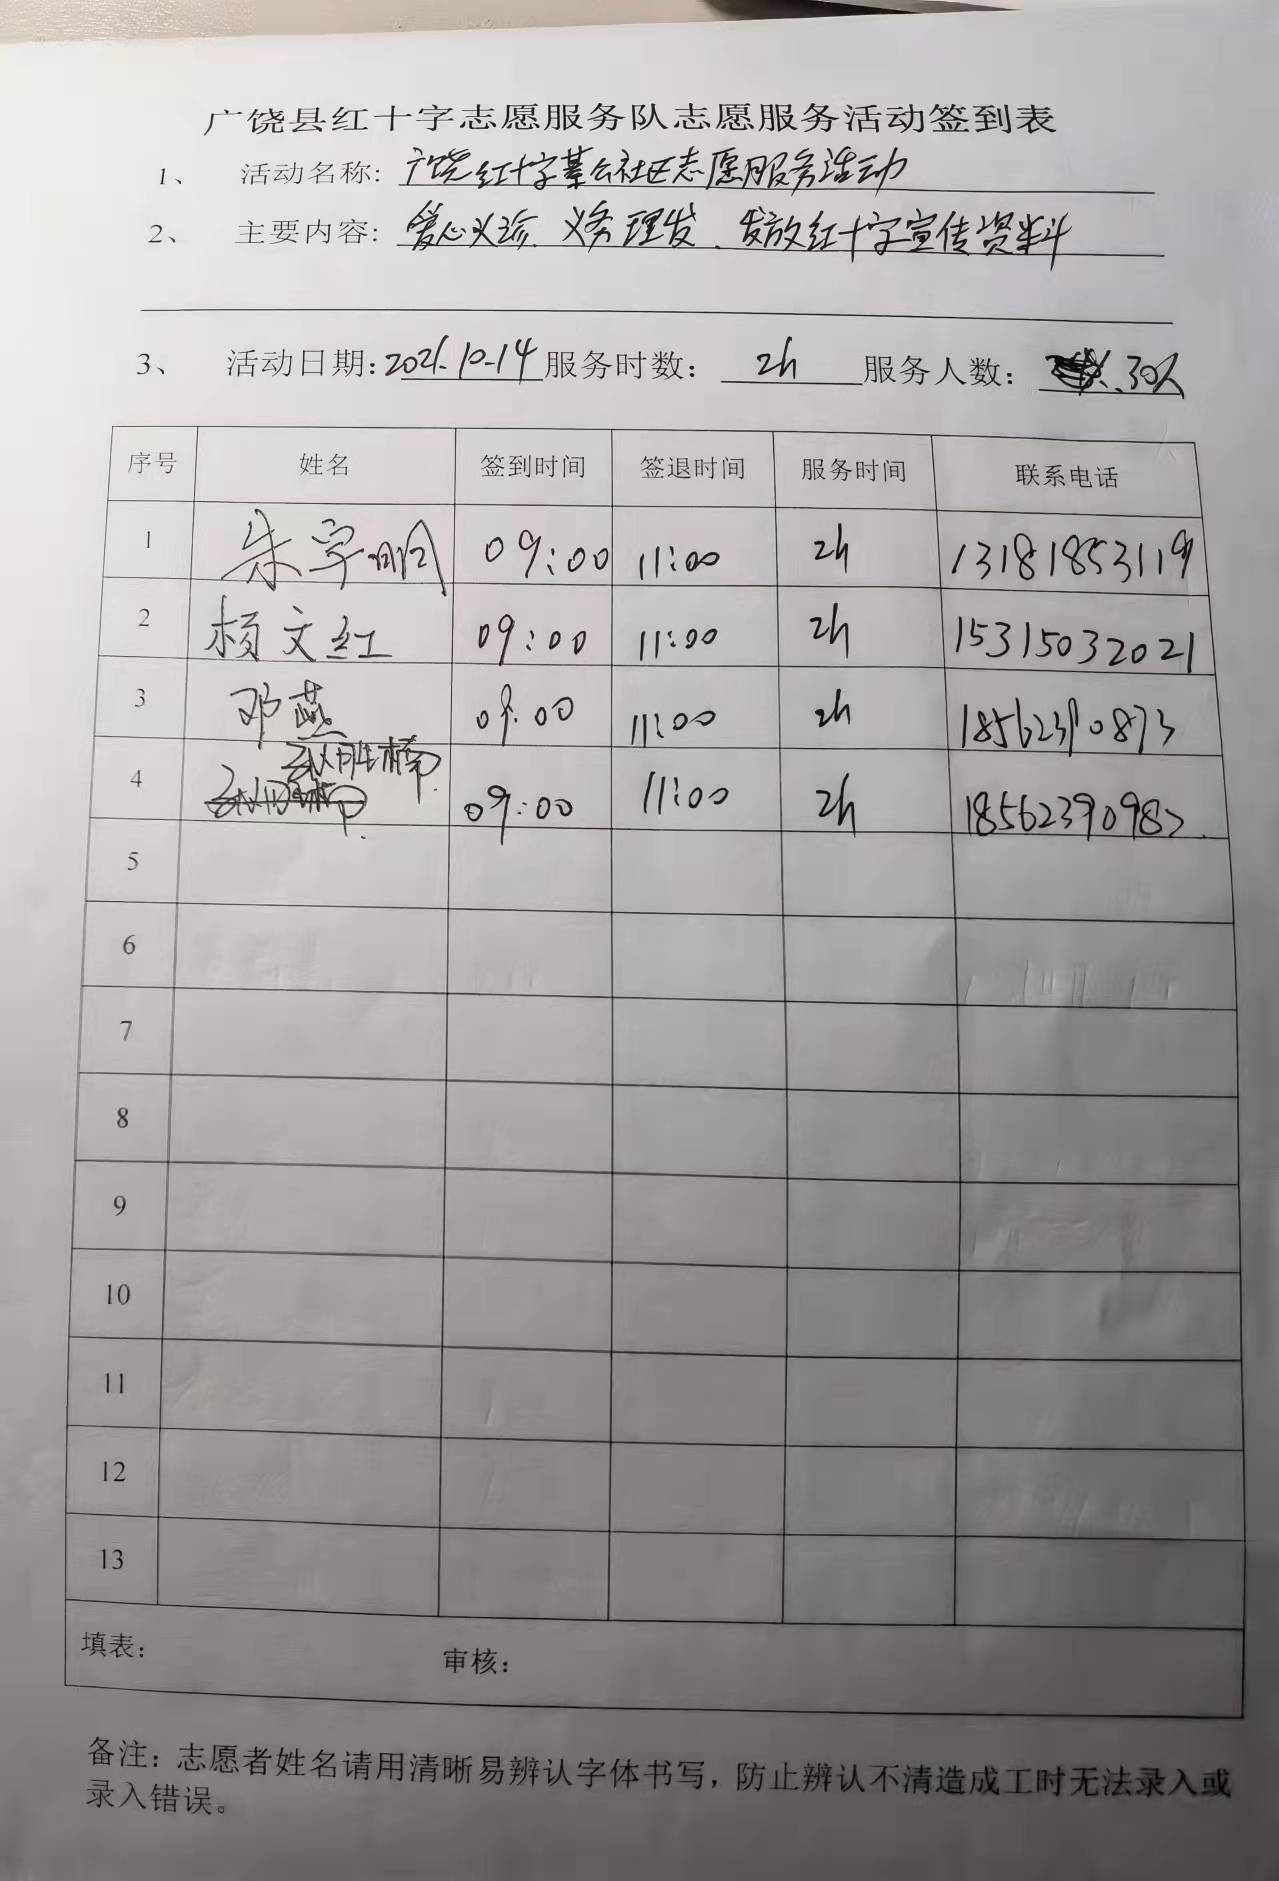 广饶县红十字志愿服务队志愿服务活动签到表
1、 活动名称: 广饶红十字基会社区志愿服务活动
2、 主要内容: 爱心义诊、义务理发、发放红十字宣传资料
3、 活动日期: 2021.10-14 服务时数: 2h 服务人数: 30人
序号 姓名 签到时间 签退时间 服务时间 联系电话
1 朱宇明 09:00 11:00 2h 13181853119
2 杨文红 09:00 11:00 2h 15315032021
3 邓燕 09:00 11:00 2h 18562390873
4 09:00 11:00 2h
5
6
7
8
9
10
11
12
13
填表: 审核:
备注: 志愿者姓名请用清晰易辨认字体书写，防止辨认不清造成工时无法录入或
录入错误。